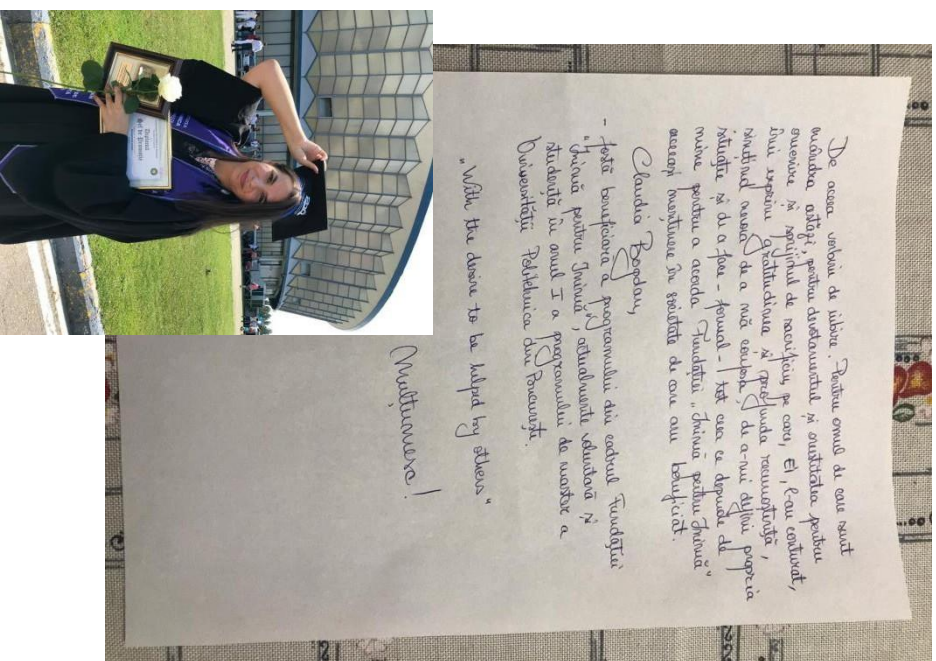 De aceea vorbim de iubire. Pentru omul de care sunt
mândra astăzi, pentru devotamentul și onestitatea pentru
omenire și spijinul de sacrificiu pe care, EI, l-au conturat,
îmi exprim gratitudinea și profunda recunoștință,
simțind nevoia de a mă confesa, de a-mi defini propria
situație și de a face - formal - tot ceea ce depinde de
mine pentru a acorda Fundației „Inimă pentru Inimă"
aceeași menținere în societate de care am beneficiat.
Claudia Bogdan,
- fostă beneficiara a programului din cadrul Fundației
„Inimă pentru Inimă", actualmente voluntară și
studentă în anul I a programului de master a
Universității Politehnica din București.
„With the desire to be helped by others"
Mulțumesc!
Diplomă
Șef de Promoție